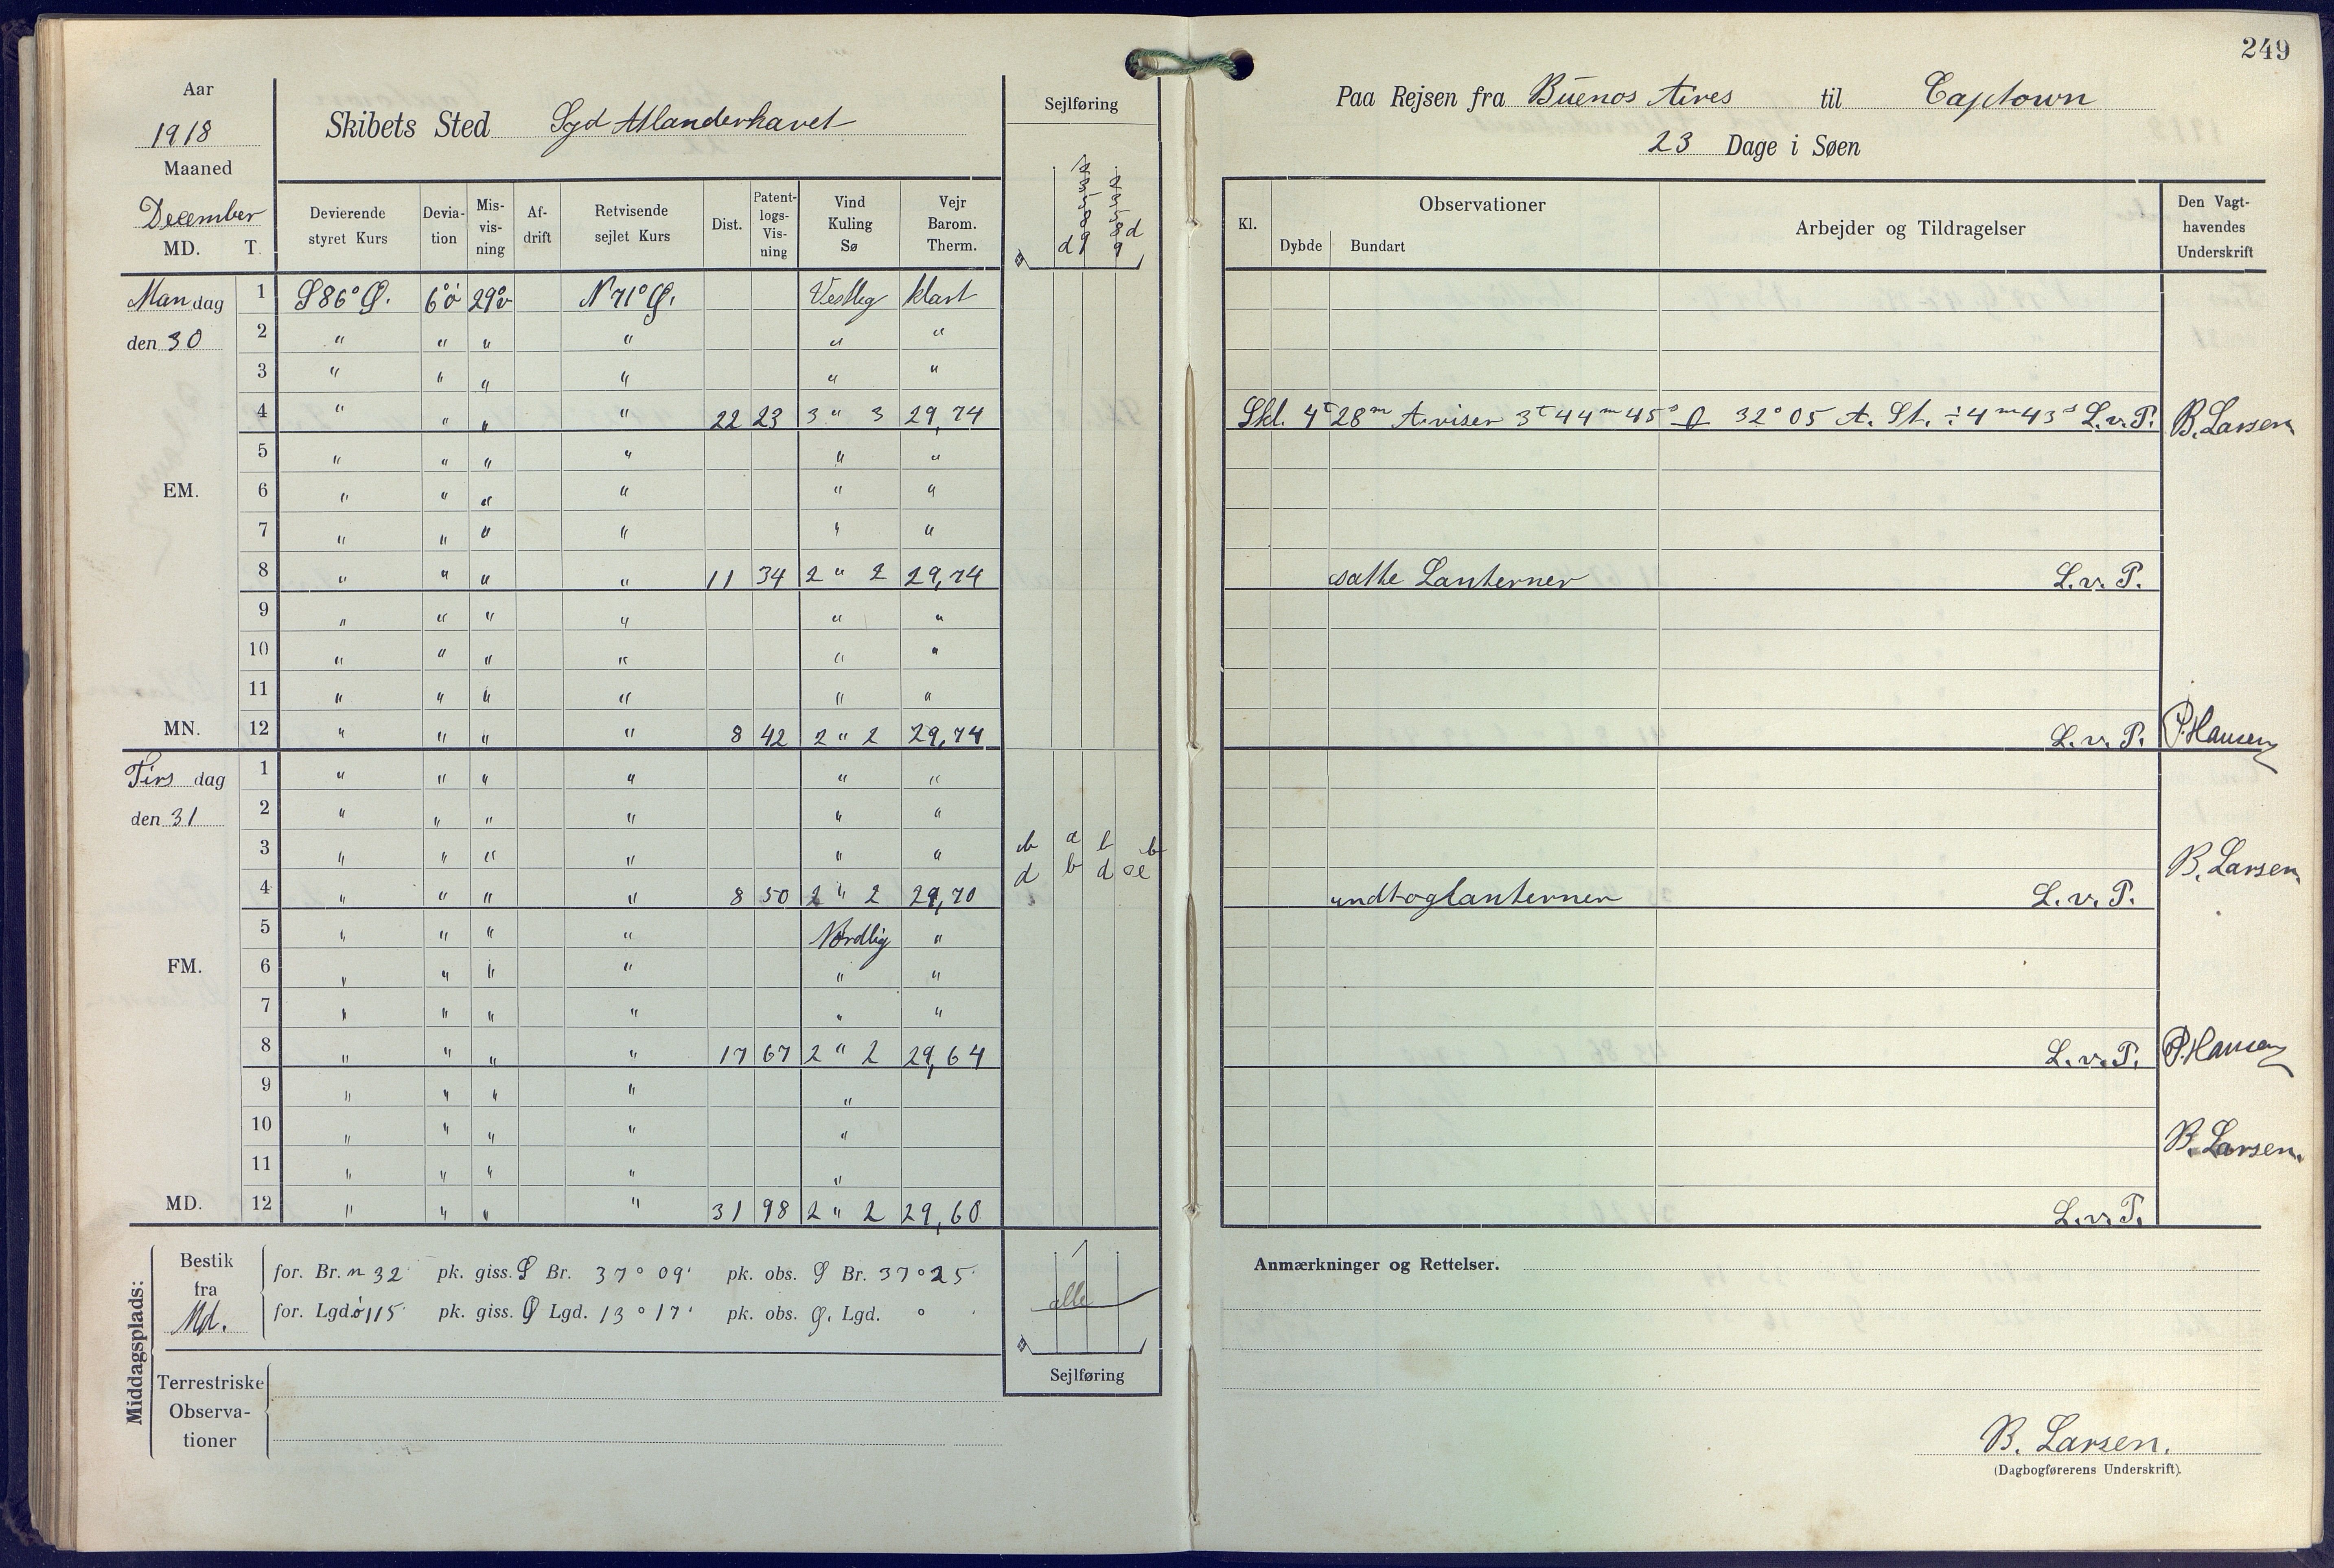 249
Aar
1918
Maaned
December
MD. T.
Skibets Sted Syd Atlanderhavet
Sejlføring
Paa Rejsen fra Buenos Aires til Captown
23 Dage i Søen
Devierende styret Kurs
Devia-tion
Mis-vis-ning
Af-drift
Retvisende sejlet Kurs
Dist.
Patent-logs-Vis-ning
Vind Kuling Sø
Vejr Barom. Therm.
Kl.
Observationer
Dybde Bundart
Arbejder og Tildragelser
Den Vagt-havendes Underskrift
Mandag 1 S86°Ø. 6°ö 29°v N71°Ø. Vestlig klart
den 30 2 " " " " " "
3 " " " " " "
4 " " " " 22 23 3 " 3 29,74 Skl. 4t 28m A.viser 3t 44m 45s O 32°05 A. St. ÷ 4m 43s L.v.P. B. Larsen
5 " " " " " "
EM. 6 " " " " " "
7 " " " " " "
8 " " " " 11 34 2 " 2 29,74 satte Lanterner L.v.P.
9 " " " " " "
10 " " " " " "
11 " " " " " "
MN. 12 " " " " 8 42 2 " 2 29,74 L.v.P. P. Hansen
Tirsdag 1 " " " " " "
den 31 2 " " " " " "
3 " " " " " "
4 " " " " 8 50 2 " 2 29,70 undtoglanterner L.v.P. B. Larsen
5 " " " " Nordlig "
FM. 6 " " " " " "
7 " " " " " "
8 " " " " 17 67 2 " 2 29,64 L.v.P. P. Hansen
9 " " " " "
10 " " " " " B. Larsen.
11 " " " " "
MD. 12 " " " " 31 98 2 " 2 29,60 L.v.P.
Middagsplads:
Bestik fra Md.
for. Br. n 32' pk. giss. S Br. 37° 09' pk. obs. S Br. 37° 25'
for. Lgd. ö 115' pk. giss. Ø Lgd. 13° 17' pk. obs. Ø. Lgd. ° '
alle
Sejlføring
Terrestriske
Observa-
tioner
Anmærkninger og Rettelser.
B. Larsen.
(Dagbogførerens Underskrift).